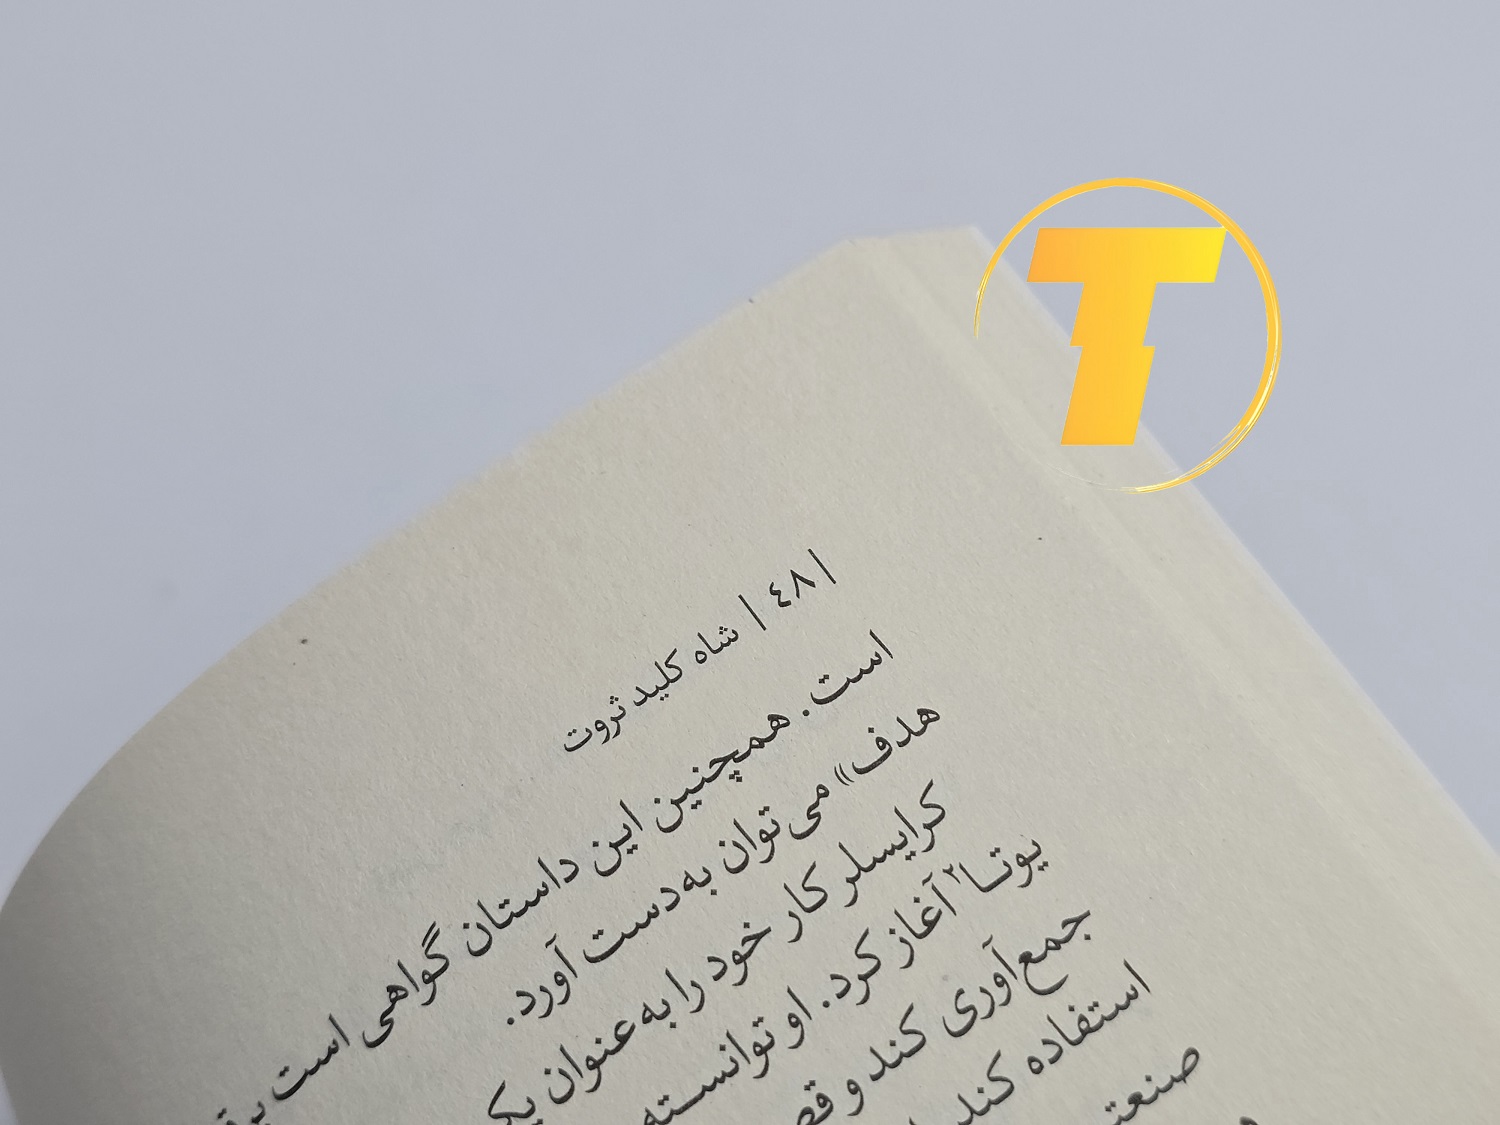 | ٤٨ | شاه کلید ثروت
است. همچنین این داستان گواهی است بر
هدف» می‌توان به‌دست آورد.
کرایسلر کار خود را به‌عنوان یک
یوتا۲ آغاز کرد. او توانسته
جمع‌آوری کند و
استفاده کند
T